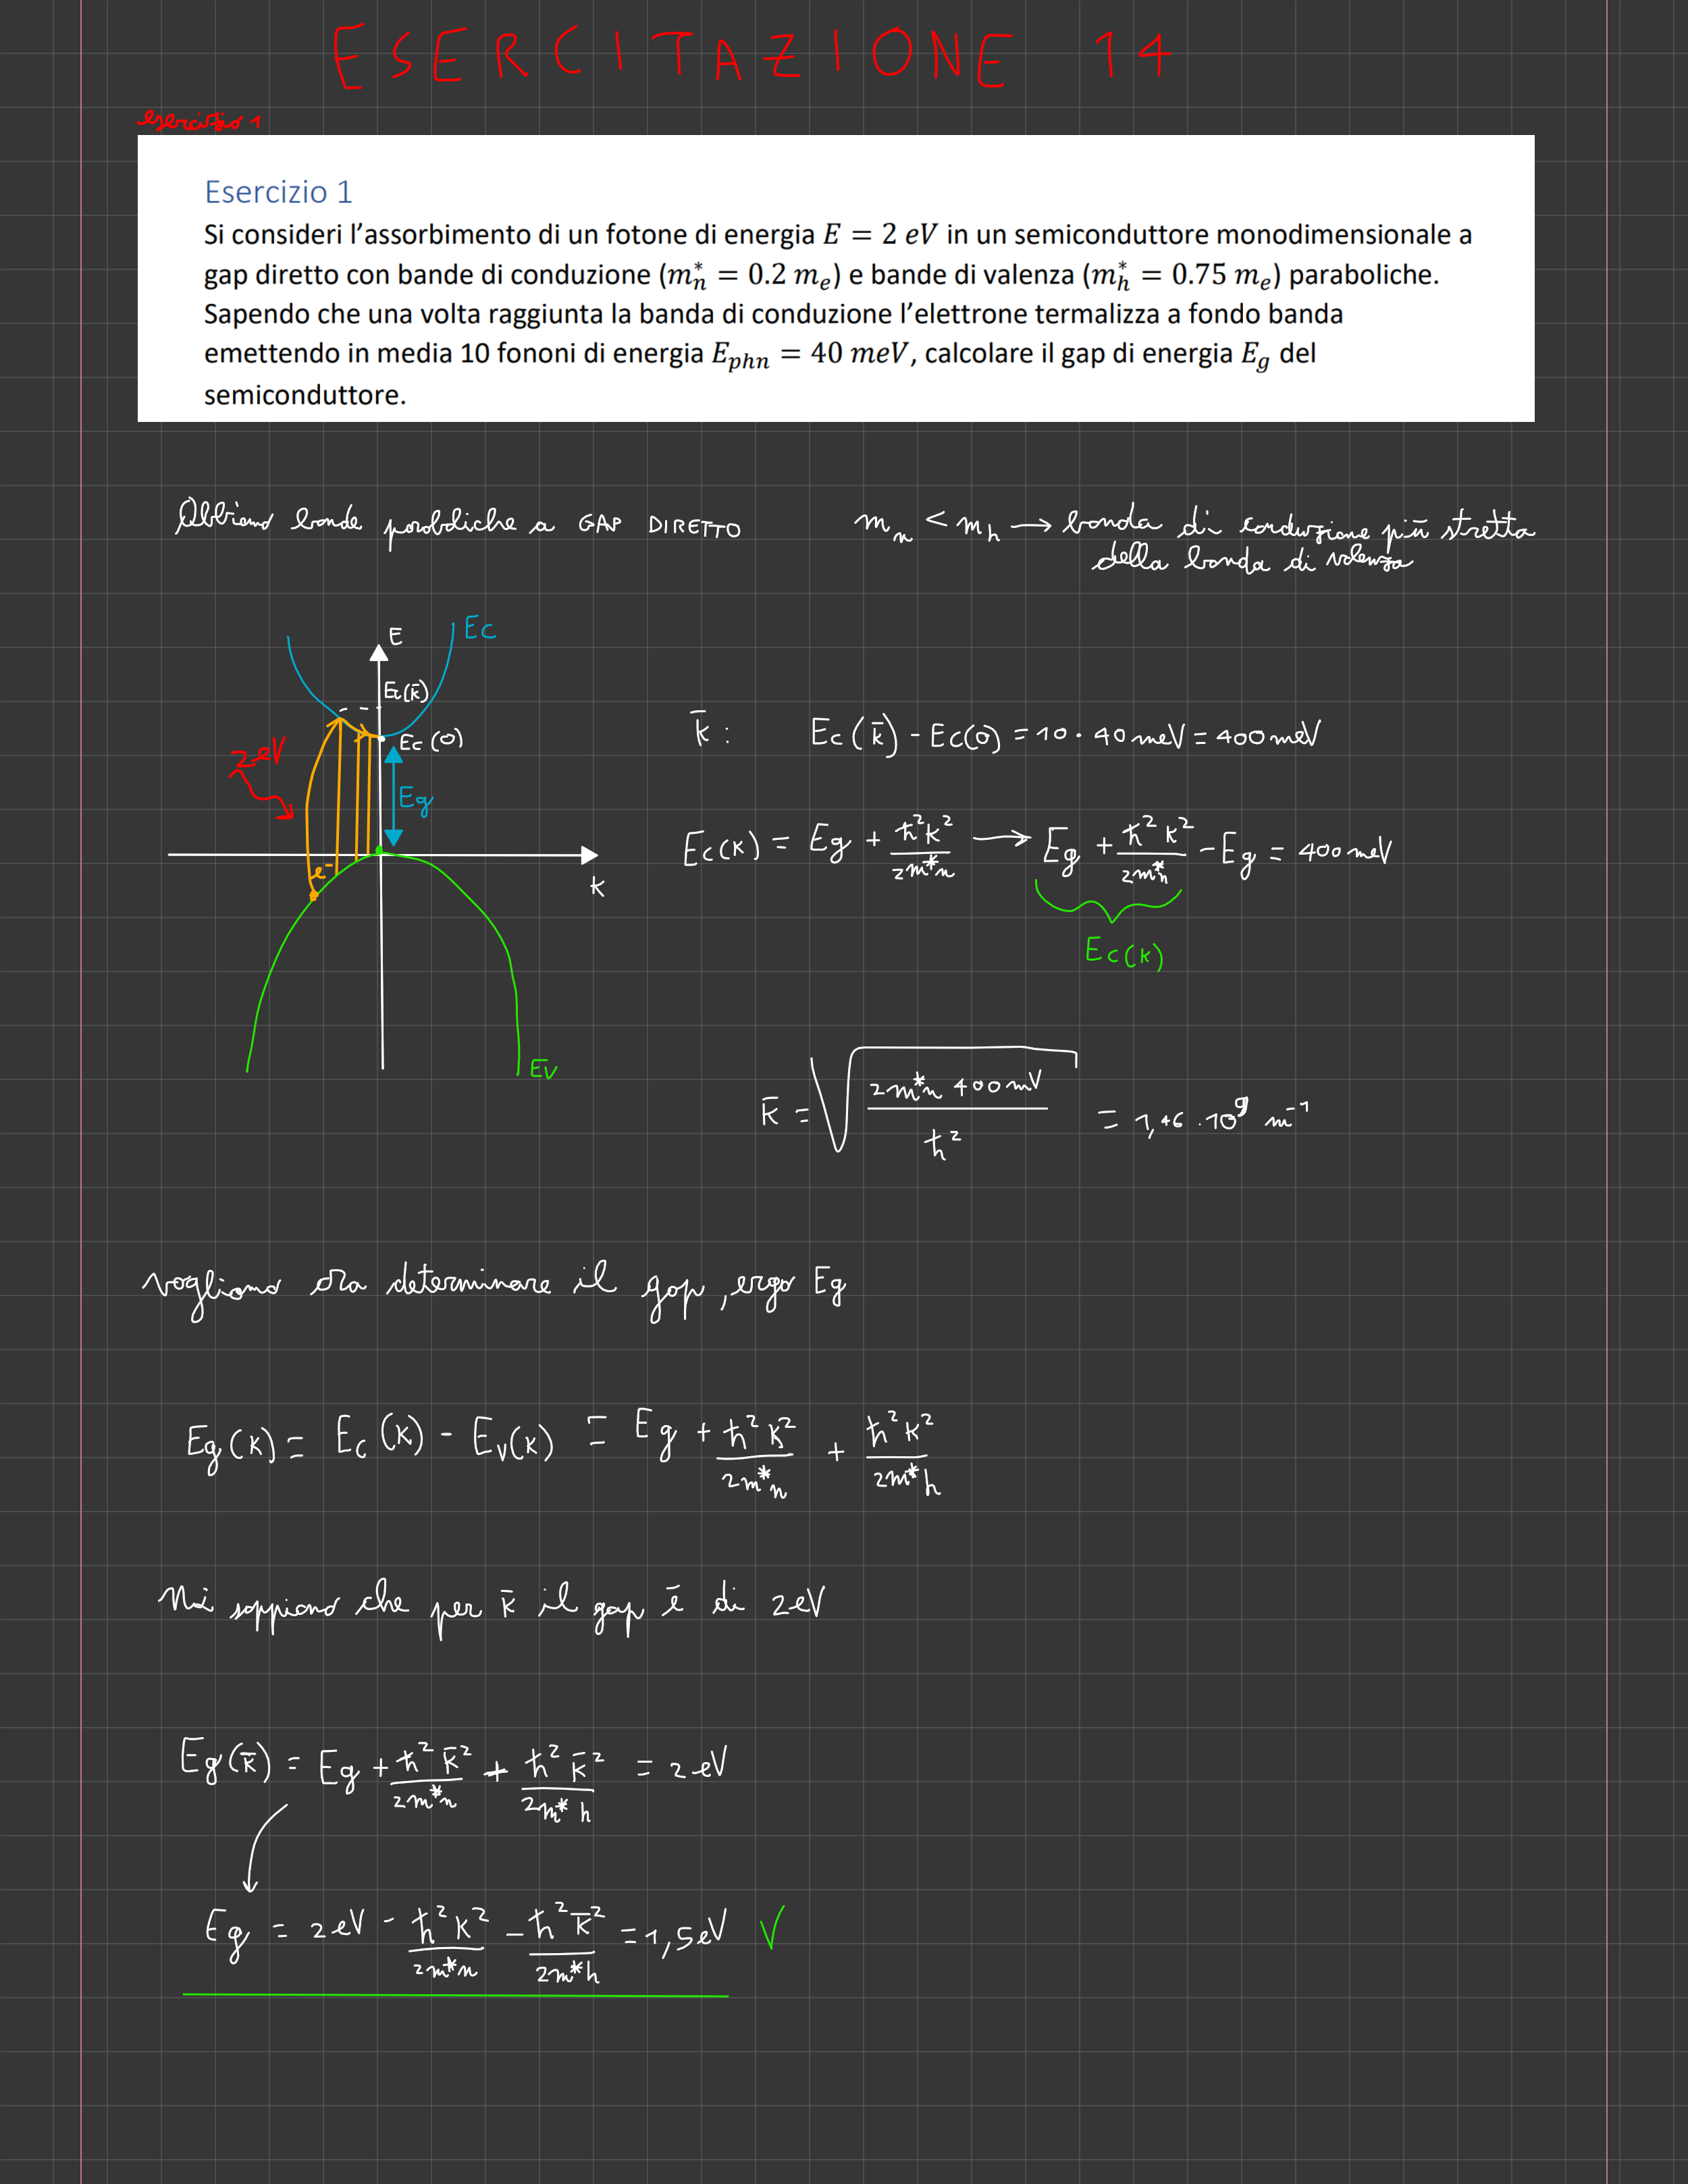 ESERCITAZIONE 14
esercizio 1
Esercizio 1
Si consideri l’assorbimento di un fotone di energia E = 2 eV in un semiconduttore monodimensionale a
gap diretto con bande di conduzione (m*ₙ = 0.2 mₑ) e bande di valenza (m*ₕ = 0.75 mₑ) paraboliche.
Sapendo che una volta raggiunta la banda di conduzione l’elettrone termalizza a fondo banda
emettendo in media 10 fononi di energia E_phn = 40 meV, calcolare il gap di energia E_g del
semiconduttore.
Abbiamo bande paraboliche a GAP DIRETTO
mₙ < mₕ → banda di conduzione più stretta
della banda di valenza
E
Ec
Ec(k̄)
Ec(0)
2eV
Eg
e⁻
k
Ev
k̄ : Ec(k̄) - Ec(0) = 10 · 40 meV = 400 meV
Ec(k) = Eg + ħ²k²/2m*n → Eg + ħ²k²/2m*n - Eg = 400 meV
Ec(k)
k̄ = √(2m*n 400mV / ħ²) = 1,46 · 10⁹ m⁻¹
Vogliamo ora determinare il gap, ergo Eg
Eg(k) = Ec(k) - Ev(k) = Eg + ħ²k²/2m*n + ħ²k²/2m*h
Noi sappiamo che per k̄ il gap è di 2eV
Eg(k̄) = Eg + ħ²k̄²/2m*n + ħ²k̄²/2m*h = 2eV
Eg = 2eV - ħ²k²/2m*n - ħ²k̄²/2m*h = 1,5eV V